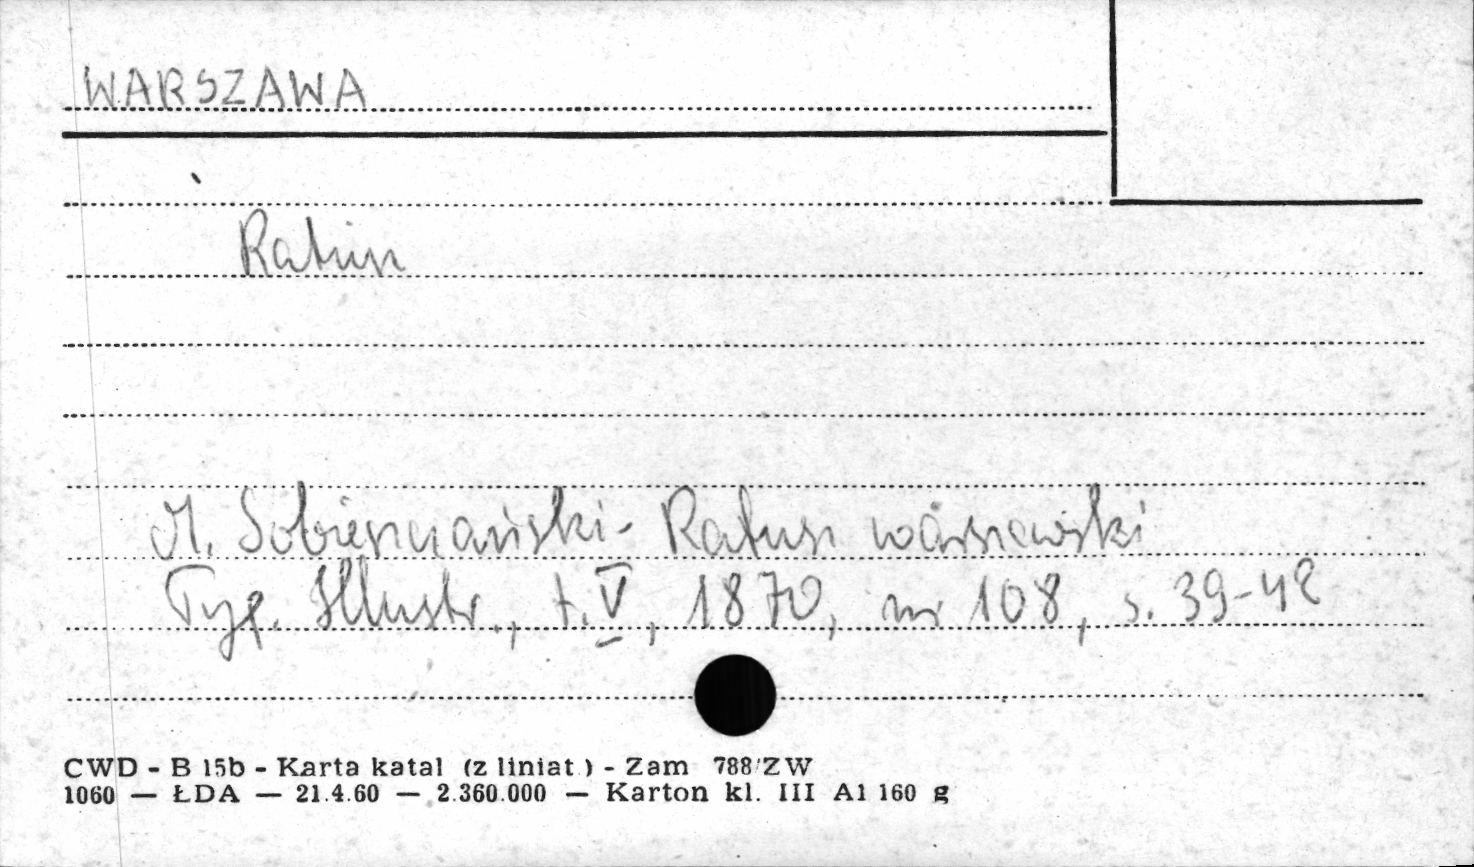 WARSZAWA
Ratusz
M. Sobieszczański - Ratusz warszawski
Tyg. Illustr., t. V, 1870, nr 108, s. 39-42
CWD - B 15b - Karta katal (z liniat.) - Zam 788/ZW
1060 — ŁDA — 21.4.60 — 2.360.000 — Karton kl. III A1 160 g